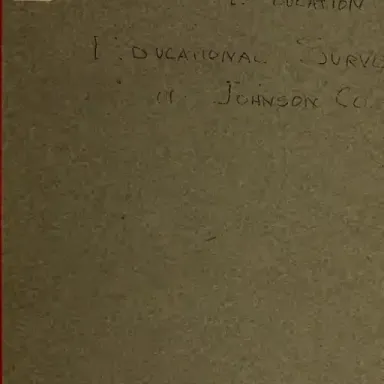 EDUCATION
EDUCATIONAL SURVE
JOHNSON CO